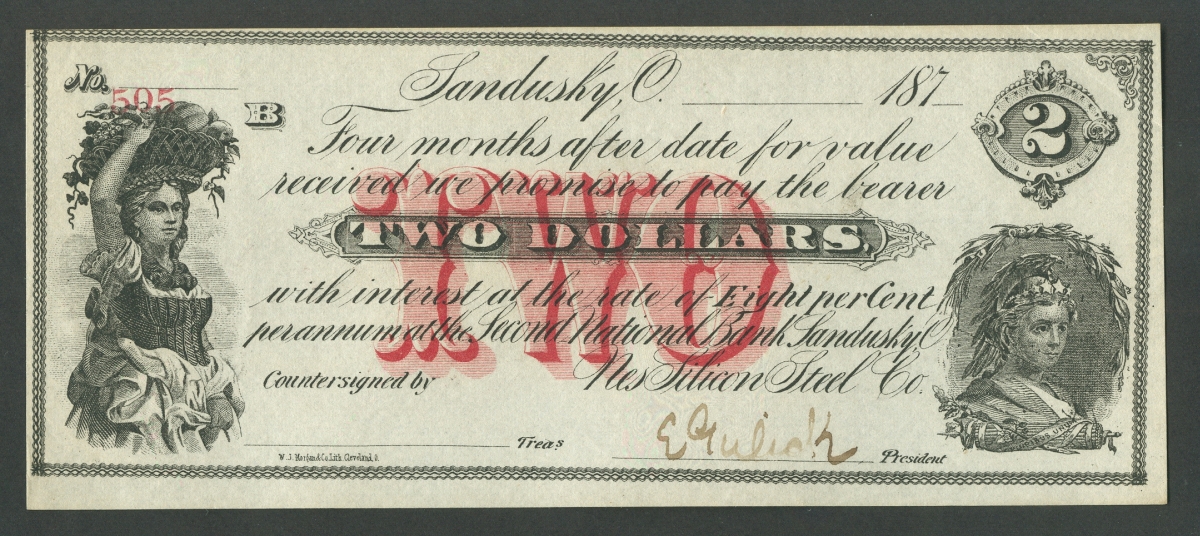 No. 505
B
Sandusky, O. 187
2
Four months after date for value
received we promise to pay the bearer
TWO DOLLARS,
TWO
with interest at the rate of Eight per Cent
per annum at the Second National Bank Sandusky O
Nes Silicon Steel Co.
Countersigned by
Treas.
E Gulick
President
W. J. Morgan & Co. Lith. Cleveland, O.